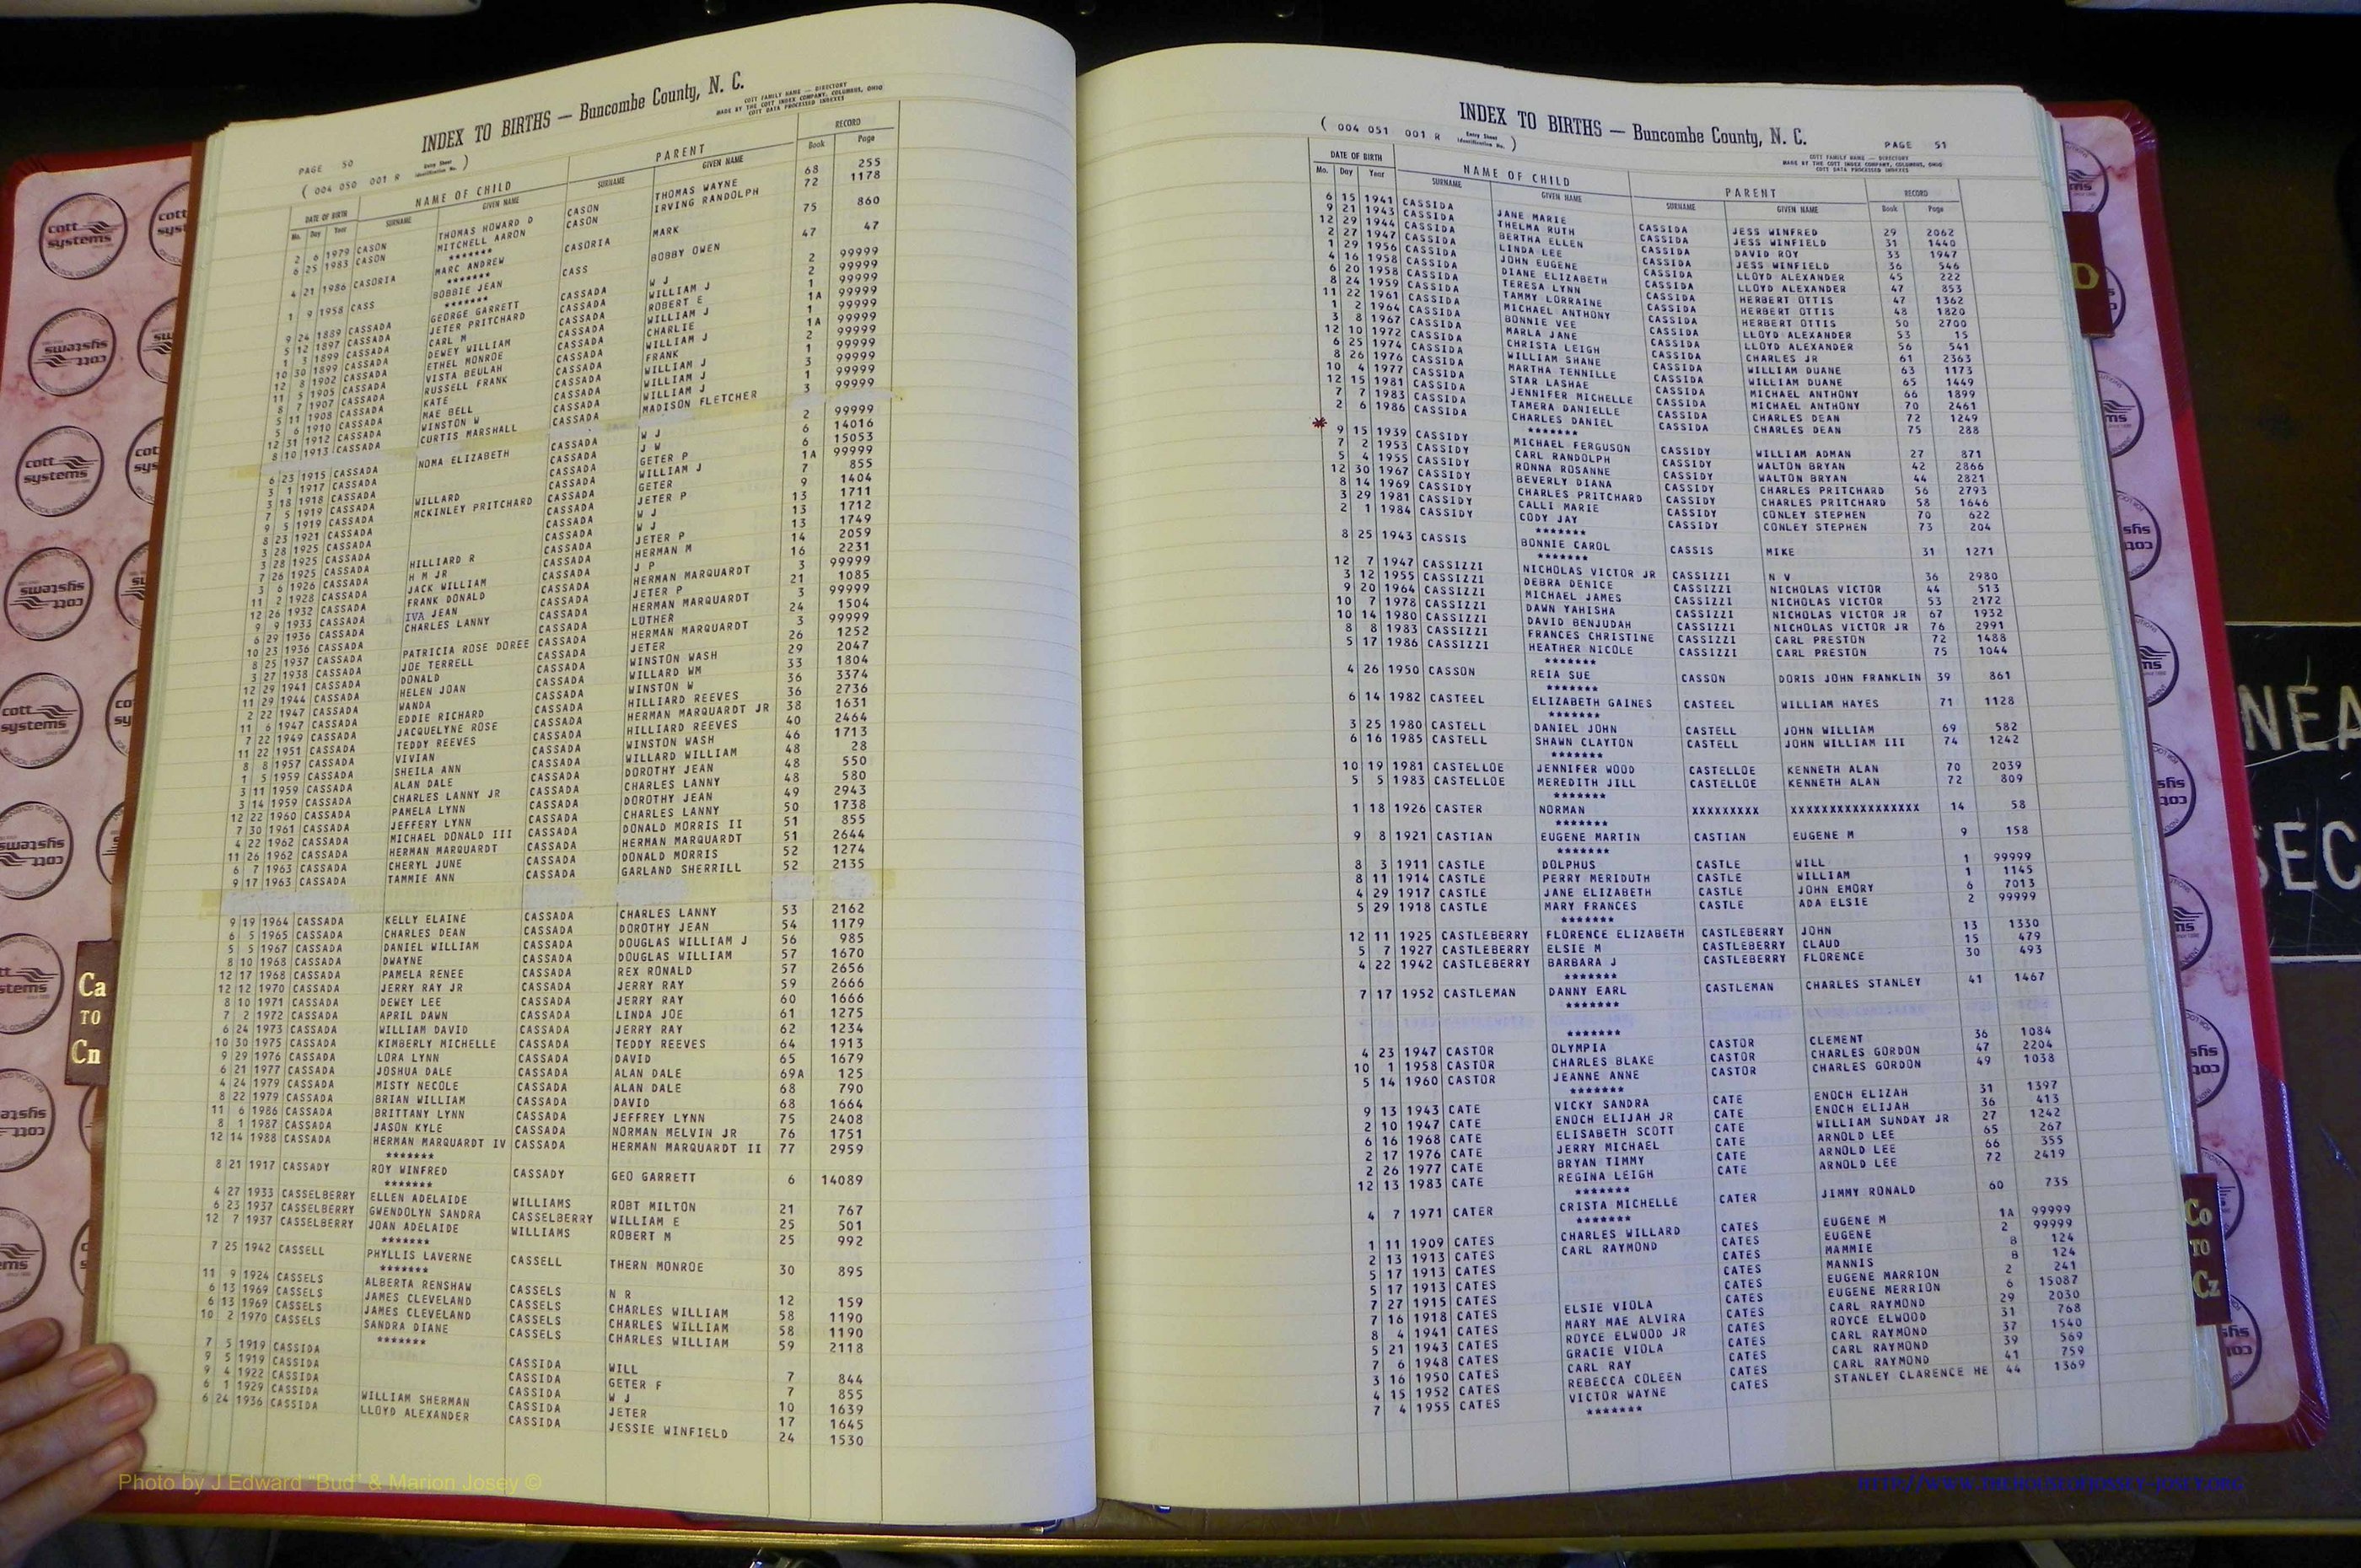 INDEX TO BIRTHS — Buncombe County, N. C.
COTT FAMILY NAME — DIRECTORY
MADE BY THE COTT INDEX COMPANY, COLUMBUS, OHIO
COTT DATA PROCESSED INDEXES
PAGE 50
( 004 050 001 R Entry Sheet Identification No. )
DATE OF BIRTH NAME OF CHILD PARENT RECORD
Mo. Day Year SURNAME GIVEN NAME SURNAME GIVEN NAME Book Page
2 6 1979 CASON THOMAS HOWARD D CASON THOMAS WAYNE 68 255
6 25 1983 CASON MITCHELL AARON CASON IRVING RANDOLPH 72 1178
*******
4 21 1986 CASORIA MARC ANDREW CASORIA MARK 75 860
*******
1 9 1958 CASS BOBBIE JEAN CASS BOBBY OWEN 47 47
*******
9 24 1889 CASSADA GEORGE GARRETT CASSADA W J 2 99999
5 12 1897 CASSADA JETER PRITCHARD CASSADA WILLIAM J 2 99999
1 3 1899 CASSADA CARL M CASSADA ROBERT E 1 99999
10 30 1899 CASSADA DEWEY WILLIAM CASSADA WILLIAM J 1A 99999
12 8 1902 CASSADA ETHEL MONROE CASSADA CHARLIE 1 99999
11 5 1905 CASSADA VISTA BEULAH CASSADA WILLIAM J 1A 99999
8 7 1907 CASSADA RUSSELL FRANK CASSADA FRANK 2 99999
5 11 1908 CASSADA KATE CASSADA WILLIAM J 1 99999
5 6 1910 CASSADA MAE BELL CASSADA WILLIAM J 3 99999
12 31 1912 CASSADA WINSTON W CASSADA WILLIAM J 1 99999
8 10 1913 CASSADA CURTIS MARSHALL CASSADA MADISON FLETCHER 3 99999
6 23 1915 CASSADA NOMA ELIZABETH CASSADA W J 2 99999
3 1 1917 CASSADA CASSADA J W 6 14016
3 18 1918 CASSADA CASSADA GETER P 6 15053
7 5 1919 CASSADA WILLARD CASSADA WILLIAM J 1A 99999
9 5 1919 CASSADA MCKINLEY PRITCHARD CASSADA GETER 7 855
8 23 1921 CASSADA CASSADA JETER P 9 1404
3 28 1925 CASSADA CASSADA W J 13 1711
3 28 1925 CASSADA CASSADA W J 13 1712
7 26 1925 CASSADA HILLIARD R CASSADA JETER P 13 1749
3 6 1926 CASSADA H M JR CASSADA HERMAN M 14 2059
11 2 1928 CASSADA JACK WILLIAM CASSADA J P 16 2231
12 26 1932 CASSADA FRANK DONALD CASSADA HERMAN MARQUARDT 3 99999
9 9 1933 CASSADA IVA JEAN CASSADA JETER P 21 1085
6 29 1936 CASSADA CHARLES LANNY CASSADA HERMAN MARQUARDT 3 99999
10 23 1936 CASSADA CASSADA LUTHER 24 1504
8 25 1937 CASSADA PATRICIA ROSE DOREE CASSADA HERMAN MARQUARDT 3 99999
3 27 1938 CASSADA JOE TERRELL CASSADA JETER 26 1252
12 29 1941 CASSADA DONALD CASSADA WINSTON WASH 29 2047
11 29 1944 CASSADA HELEN JOAN CASSADA WILLARD WM 33 1804
2 22 1947 CASSADA WANDA CASSADA WINSTON W 36 3374
11 6 1947 CASSADA EDDIE RICHARD CASSADA HILLIARD REEVES 36 2736
7 22 1949 CASSADA JACQUELYNE ROSE CASSADA HERMAN MARQUARDT JR 38 1631
11 22 1951 CASSADA TEDDY REEVES CASSADA HILLIARD REEVES 40 2464
8 8 1957 CASSADA VIVIAN CASSADA WINSTON WASH 46 1713
1 5 1959 CASSADA SHEILA ANN CASSADA WILLARD WILLIAM 48 28
3 11 1959 CASSADA ALAN DALE CASSADA DOROTHY JEAN 48 550
3 14 1959 CASSADA CHARLES LANNY JR CASSADA CHARLES LANNY 48 580
12 22 1960 CASSADA PAMELA LYNN CASSADA DOROTHY JEAN 49 2943
7 30 1961 CASSADA JEFFERY LYNN CASSADA CHARLES LANNY 50 1738
4 22 1962 CASSADA MICHAEL DONALD III CASSADA DONALD MORRIS II 51 855
11 26 1962 CASSADA HERMAN MARQUARDT CASSADA HERMAN MARQUARDT 51 2644
6 7 1963 CASSADA CHERYL JUNE CASSADA DONALD MORRIS 52 1274
9 17 1963 CASSADA TAMMIE ANN CASSADA GARLAND SHERRILL 52 2135
9 19 1964 CASSADA KELLY ELAINE CASSADA CHARLES LANNY 53 2162
6 5 1965 CASSADA CHARLES DEAN CASSADA DOROTHY JEAN 54 1179
5 5 1967 CASSADA DANIEL WILLIAM CASSADA DOUGLAS WILLIAM J 56 985
8 10 1968 CASSADA DWAYNE CASSADA DOUGLAS WILLIAM 57 1670
12 17 1968 CASSADA PAMELA RENEE CASSADA REX RONALD 57 2656
12 12 1970 CASSADA JERRY RAY JR CASSADA JERRY RAY 59 2666
8 10 1971 CASSADA DEWEY LEE CASSADA JERRY RAY 60 1666
7 2 1972 CASSADA APRIL DAWN CASSADA LINDA JOE 61 1275
6 24 1973 CASSADA WILLIAM DAVID CASSADA JERRY RAY 62 1234
10 30 1975 CASSADA KIMBERLY MICHELLE CASSADA TEDDY REEVES 64 1913
9 29 1976 CASSADA LORA LYNN CASSADA DAVID 65 1679
6 21 1977 CASSADA JOSHUA DALE CASSADA ALAN DALE 69A 125
4 24 1979 CASSADA MISTY NECOLE CASSADA ALAN DALE 68 790
8 22 1979 CASSADA BRIAN WILLIAM CASSADA DAVID 68 1664
11 6 1986 CASSADA BRITTANY LYNN CASSADA JEFFREY LYNN 75 2408
8 1 1987 CASSADA JASON KYLE CASSADA NORMAN MELVIN JR 76 1751
12 14 1988 CASSADA HERMAN MARQUARDT IV CASSADA HERMAN MARQUARDT II 77 2959
*******
8 21 1917 CASSADY ROY WINFRED CASSADY GEO GARRETT 6 14089
*******
4 27 1933 CASSELBERRY ELLEN ADELAIDE WILLIAMS ROBT MILTON 21 767
6 23 1937 CASSELBERRY GWENDOLYN SANDRA CASSELBERRY WILLIAM E 25 501
12 7 1937 CASSELBERRY JOAN ADELAIDE WILLIAMS ROBERT M 25 992
*******
7 25 1942 CASSELL PHYLLIS LAVERNE CASSELL THERN MONROE 30 895
*******
11 9 1924 CASSELS ALBERTA RENSHAW CASSELS N R 12 159
6 13 1969 CASSELS JAMES CLEVELAND CASSELS CHARLES WILLIAM 58 1190
6 13 1969 CASSELS JAMES CLEVELAND CASSELS CHARLES WILLIAM 58 1190
10 2 1970 CASSELS SANDRA DIANE CASSELS CHARLES WILLIAM 59 2118
*******
7 5 1919 CASSIDA CASSIDA WILL 7 844
9 5 1919 CASSIDA CASSIDA GETER F 7 855
9 4 1922 CASSIDA CASSIDA W J 10 1639
6 1 1929 CASSIDA WILLIAM SHERMAN CASSIDA JETER 17 1645
6 24 1936 CASSIDA LLOYD ALEXANDER CASSIDA JESSIE WINFIELD 24 1530
INDEX TO BIRTHS — Buncombe County, N. C.
( 004 051 001 R Entry Sheet Identification No. )
PAGE 51
COTT FAMILY NAME — DIRECTORY
MADE BY THE COTT INDEX COMPANY, COLUMBUS, OHIO
COTT DATA PROCESSED INDEXES
DATE OF BIRTH NAME OF CHILD PARENT RECORD
Mo. Day Year SURNAME GIVEN NAME SURNAME GIVEN NAME Book Page
6 15 1941 CASSIDA JANE MARIE CASSIDA JESS WINFRED 29 2062
9 21 1943 CASSIDA THELMA RUTH CASSIDA JESS WINFIELD 31 1440
12 29 1944 CASSIDA BERTHA ELLEN CASSIDA DAVID ROY 33 1947
2 27 1947 CASSIDA LINDA LEE CASSIDA JESS WINFIELD 36 546
1 29 1956 CASSIDA JOHN EUGENE CASSIDA LLOYD ALEXANDER 45 222
4 16 1958 CASSIDA DIANE ELIZABETH CASSIDA LLOYD ALEXANDER 47 853
6 20 1958 CASSIDA TERESA LYNN CASSIDA HERBERT OTTIS 47 1362
8 24 1959 CASSIDA TAMMY LORRAINE CASSIDA HERBERT OTTIS 48 1820
11 22 1961 CASSIDA MICHAEL ANTHONY CASSIDA HERBERT OTTIS 50 2700
1 2 1964 CASSIDA BONNIE VEE CASSIDA LLOYD ALEXANDER 53 15
3 8 1967 CASSIDA MARLA JANE CASSIDA LLOYD ALEXANDER 56 541
12 10 1972 CASSIDA CHRISTA LEIGH CASSIDA CHARLES JR 61 2363
6 25 1974 CASSIDA WILLIAM SHANE CASSIDA WILLIAM DUANE 63 1173
8 26 1976 CASSIDA MARTHA TENNILLE CASSIDA WILLIAM DUANE 65 1449
10 4 1977 CASSIDA STAR LASHAE CASSIDA MICHAEL ANTHONY 66 1899
12 15 1981 CASSIDA JENNIFER MICHELLE CASSIDA MICHAEL ANTHONY 70 2461
7 7 1983 CASSIDA TAMERA DANIELLE CASSIDA CHARLES DEAN 72 1249
2 6 1986 CASSIDA CHARLES DANIEL CASSIDA CHARLES DEAN 75 288
*******
9 15 1939 CASSIDY MICHAEL FERGUSON CASSIDY WILLIAM ADMAN 27 871
7 2 1953 CASSIDY CARL RANDOLPH CASSIDY WALTON BRYAN 42 2866
5 4 1955 CASSIDY RONNA ROSANNE CASSIDY WALTON BRYAN 44 2821
12 30 1967 CASSIDY BEVERLY DIANA CASSIDY CHARLES PRITCHARD 56 2793
8 14 1969 CASSIDY CHARLES PRITCHARD CASSIDY CHARLES PRITCHARD 58 1646
3 29 1981 CASSIDY CALLI MARIE CASSIDY CONLEY STEPHEN 70 622
2 1 1984 CASSIDY CODY JAY CASSIDY CONLEY STEPHEN 73 204
*******
8 25 1943 CASSIS BONNIE CAROL CASSIS MIKE 31 1271
*******
12 7 1947 CASSIZZI NICHOLAS VICTOR JR CASSIZZI N V 36 2980
3 12 1955 CASSIZZI DEBRA DENICE CASSIZZI NICHOLAS VICTOR 44 513
9 20 1964 CASSIZZI MICHAEL JAMES CASSIZZI NICHOLAS VICTOR 53 2172
10 7 1978 CASSIZZI DAWN YAHISHA CASSIZZI NICHOLAS VICTOR JR 67 1932
10 14 1980 CASSIZZI DAVID BENJUDAH CASSIZZI NICHOLAS VICTOR JR 76 2991
8 8 1983 CASSIZZI FRANCES CHRISTINE CASSIZZI CARL PRESTON 72 1488
5 17 1986 CASSIZZI HEATHER NICOLE CASSIZZI CARL PRESTON 75 1044
*******
4 26 1950 CASSON REIA SUE CASSON DORIS JOHN FRANKLIN 39 861
*******
6 14 1982 CASTEEL ELIZABETH GAINES CASTEEL WILLIAM HAYES 71 1128
*******
3 25 1980 CASTELL DANIEL JOHN CASTELL JOHN WILLIAM 69 582
6 16 1985 CASTELL SHAWN CLAYTON CASTELL JOHN WILLIAM III 74 1242
*******
10 19 1981 CASTELLOE JENNIFER WOOD CASTELLOE KENNETH ALAN 70 2039
5 5 1983 CASTELLOE MEREDITH JILL CASTELLOE KENNETH ALAN 72 809
*******
1 18 1926 CASTER NORMAN XXXXXXXXX XXXXXXXXXXXXXXXXX 14 58
*******
9 8 1921 CASTIAN EUGENE MARTIN CASTIAN EUGENE M 9 158
*******
8 3 1911 CASTLE DOLPHUS CASTLE WILL 1 99999
8 11 1914 CASTLE PERRY MERIDUTH CASTLE WILLIAM 1 1145
4 29 1917 CASTLE JANE ELIZABETH CASTLE JOHN EMORY 6 7013
5 29 1918 CASTLE MARY FRANCES CASTLE ADA ELSIE 2 99999
*******
12 11 1925 CASTLEBERRY FLORENCE ELIZABETH CASTLEBERRY JOHN 13 1330
5 7 1927 CASTLEBERRY ELSIE M CASTLEBERRY CLAUD 15 479
4 22 1942 CASTLEBERRY BARBARA J CASTLEBERRY FLORENCE 30 493
*******
7 17 1952 CASTLEMAN DANNY EARL CASTLEMAN CHARLES STANLEY 41 1467
*******
*******
4 23 1947 CASTOR OLYMPIA CASTOR CLEMENT 36 1084
10 1 1958 CASTOR CHARLES BLAKE CASTOR CHARLES GORDON 47 2204
5 14 1960 CASTOR JEANNE ANNE CASTOR CHARLES GORDON 49 1038
*******
9 13 1943 CATE VICKY SANDRA CATE ENOCH ELIZAH 31 1397
2 10 1947 CATE ENOCH ELIJAH JR CATE ENOCH ELIJAH 36 413
6 16 1968 CATE ELISABETH SCOTT CATE WILLIAM SUNDAY JR 27 1242
2 17 1976 CATE JERRY MICHAEL CATE ARNOLD LEE 65 267
2 26 1977 CATE BRYAN TIMMY CATE ARNOLD LEE 66 355
12 13 1983 CATE REGINA LEIGH CATE ARNOLD LEE 72 2419
*******
4 7 1971 CATER CRISTA MICHELLE CATER JIMMY RONALD 60 735
*******
1 11 1909 CATES CHARLES WILLARD CATES EUGENE M 1A 99999
2 13 1913 CATES CARL RAYMOND CATES EUGENE 2 99999
5 17 1913 CATES CATES MAMMIE 8 124
5 17 1913 CATES CATES MANNIS 8 124
7 27 1915 CATES ELSIE VIOLA CATES EUGENE MARRION 2 241
7 16 1918 CATES MARY MAE ALVIRA CATES EUGENE MERRION 6 15087
8 4 1941 CATES ROYCE ELWOOD JR CATES CARL RAYMOND 29 2030
5 21 1943 CATES GRACIE VIOLA CATES ROYCE ELWOOD 31 768
7 6 1948 CATES CARL RAY CATES CARL RAYMOND 37 1540
3 16 1950 CATES REBECCA COLEEN CATES CARL RAYMOND 39 569
4 15 1952 CATES VICTOR WAYNE CATES CARL RAYMOND 41 759
7 4 1955 CATES CATES STANLEY CLARENCE HE 44 1369
*******
Ca TO Cn
Co TO Cz
cott systems
Photo by J Edward "Bud" & Marion Josey ©
HTTP://WWW.THEHOUSEOFJOSSEY-JOSEY.ORG